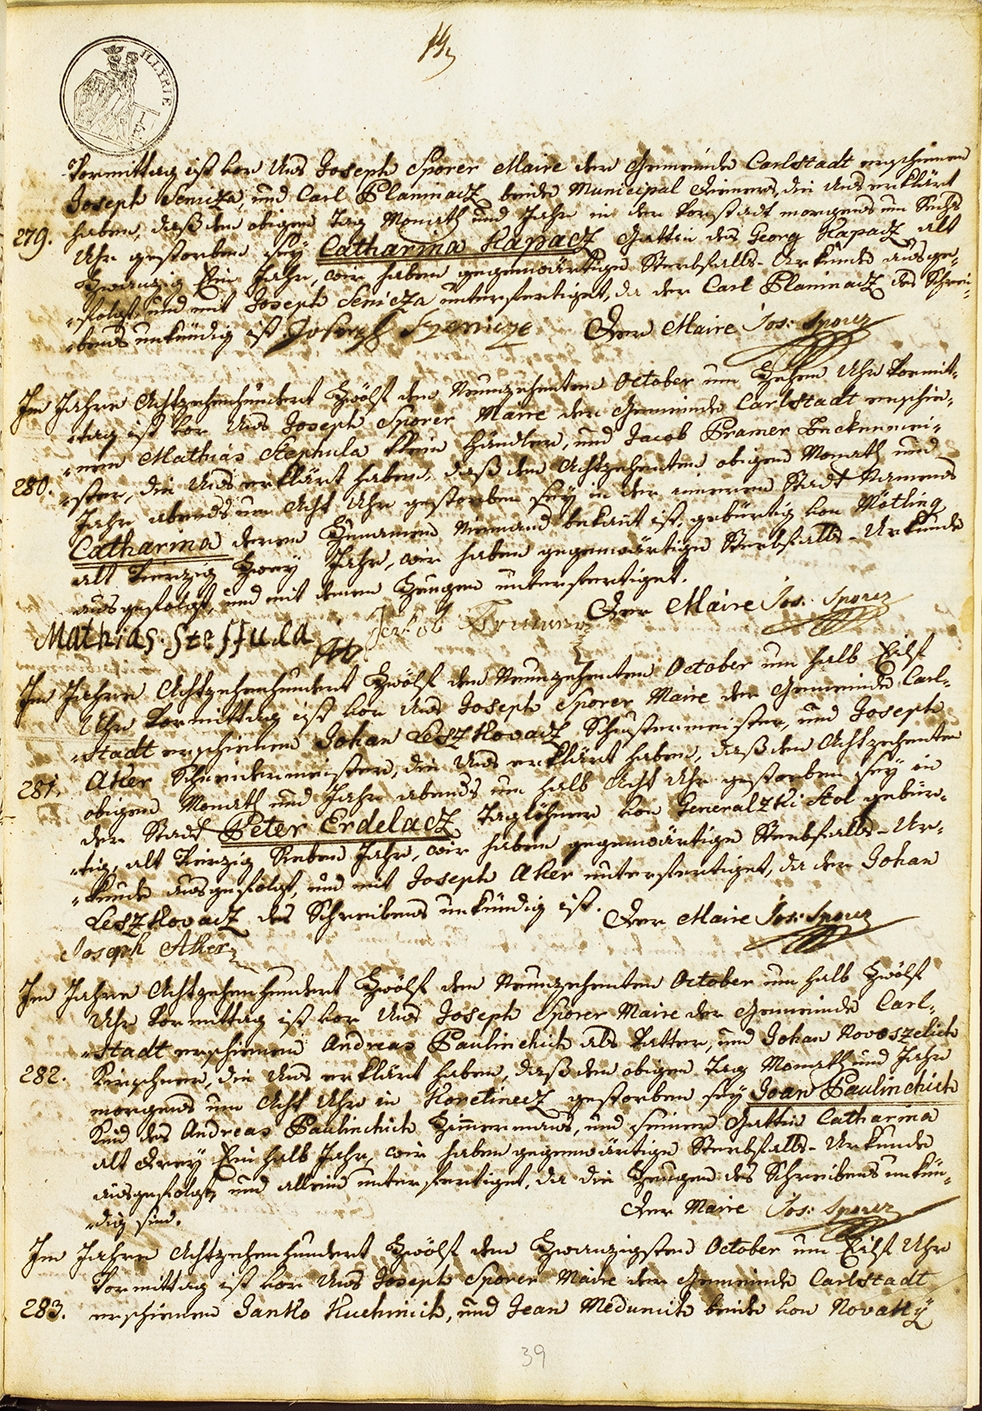 14
ILLYRIE
Vormittag ist vor Uns Joseph Sporer Maire der Gemeinde Carlstadt erschienen
Joseph Senicza, und Carl Planinacz beide Municipal Dieners, die Uns erklärt
279. haben, daß den obigen Tag Monath und Jahr in der Vorstadt morgens um Sechs
Uhr gestorben sey Catharina Kapacz Gattin des Georg Kapacz alt
Zwanzig Ein Jahr, wir haben gegenwärtige Sterbfalls-Urkunde ausge-
-folgt, und mit Joseph Senicza unterfertiget, da der Carl Planinacz des Schrei-
-bens unkündig ist. Joseph Szenicze Der Maire Jos: Sporer
Im Jahre Achtzehenhundert Zwölf den Neunzehenten October um Zehen Uhr Vormit-
-tag ist vor Uns Joseph Sporer Maire der Gemeinde Carlstadt erschie-
-nen Mathias Stephula klein Händler, und Jacob Pramer Beckermei-
280. -ster, die Uns erklärt haben, daß den Achtzehenten obigen Monath und
Jahr abends um Acht Uhr gestorben sey in der inneren Stadt Namens
Catharina deren Zunamen Niemand bekant ist, gebürtig von Mötling
alt Vierzig Zwey Jahr, wir haben gegenwärtige Sterbfalls-Urkunde
ausgefolgt, und mit denen Zeugen unterfertiget.
Der Maire Jos: Sporer
Mathias Steffula Jakob
Im Jahre Achtzehenhundert Zwölf den Neunzehenten October um halb Eilf
Uhr Vormittag ist vor Uns Joseph Sporer Maire der Gemeinde Carl-
-stadt erschienen Johan Leszkovacz Schustermeister, und Joseph
281. Aker Schneidermeister, die Uns erklärt haben, daß den Achtzehenten
obigen Monath und Jahr abends um halb Acht Uhr gestorben sey in
der Stadt Peter Erdelacz Taglöhner von Generalzki Stol gebür-
-tig, alt Vierzig Sieben Jahr, wir haben gegenwärtige Sterbfalls-Ur-
-kunde ausgefolgt, und mit Joseph Aker unterfertiget, da der Johan
Leszkovacz des Schreibens unkündig ist. Der Maire Jos: Sporer
Joseph Aker
Im Jahre Achtzehenhundert Zwölf den Neunzehenten October um halb Zwölf
Uhr Vormittag ist vor Uns Joseph Sporer Maire der Gemeinde Carl-
-stadt erschienen Andreas Paulinchich als Vatter, und Johan Novoszelich
282. Kirschner, die Uns erklärt haben, daß den obigen Tag Monath und Jahr
morgens um Acht Uhr in Koretinecz gestorben sey Joan Paulinchich
Kind des Andreas Paulinchich Zimermans, und seiner Gattin Catharina
alt Drey Ein halb Jahr, wir haben gegenwärtige Sterbfalls-Urkunde
ausgefolgt, und allein unterfertiget, da die Zeugen des Schreibens unkün-
-dig sind. Der Maire Jos: Sporer
Im Jahre Achtzehenhundert Zwölf den Zwanzigsten October um Eilf Uhr
Vormittag ist vor Uns Joseph Sporer Maire der Gemeinde Carlstadt
283. erschienen Janko Kuchinich, und Jean Medunich beide von Novaky
39